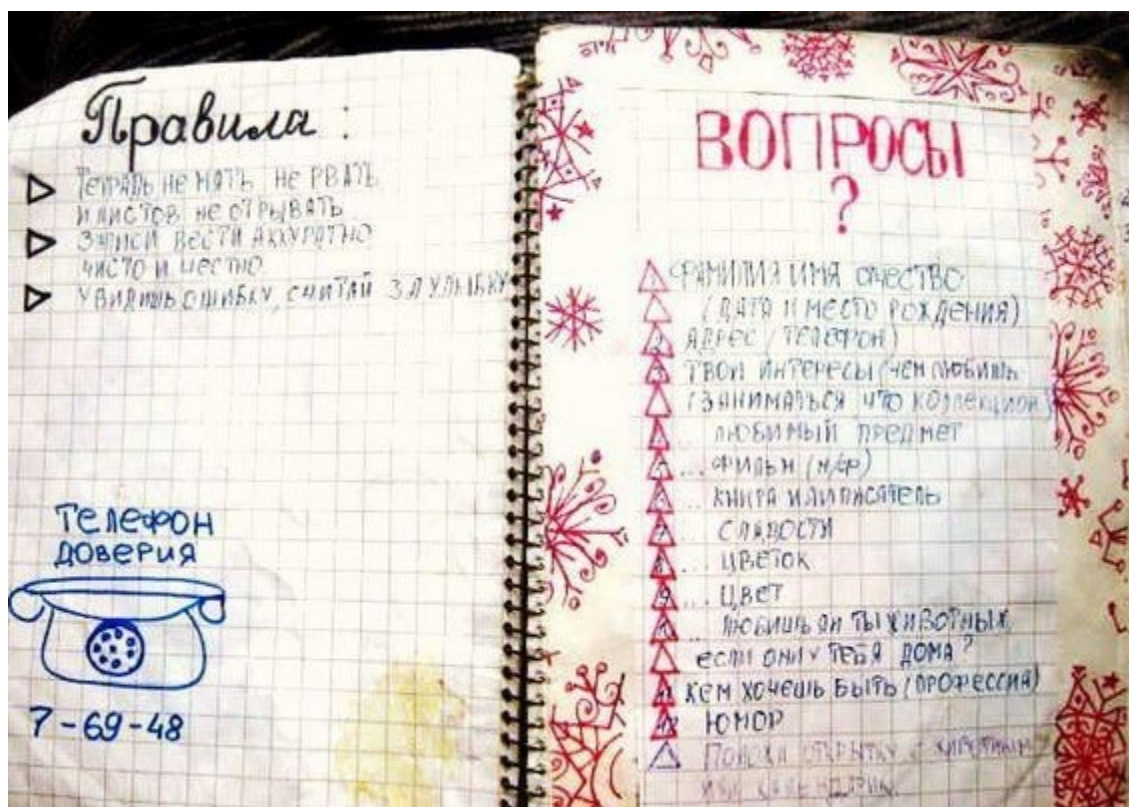 Правила:
ТЕТРАДЬ НЕ МЯТЬ, НЕ РВАТЬ
И ЛИСТОВ НЕ ОТРЫВАТЬ
ЗАПИСИ ВЕСТИ АККУРАТНО
ЧИСТО И ЧЕСТНО
УВИДИШЬ ОШИБКУ, СЧИТАЙ ЗА УЛЫБКУ
ТЕЛЕФОН
ДОВЕРИЯ
7-69-48
ВОПРОСЫ
?
1 ФАМИЛИЯ ИМЯ ОЧЕСТВО
(ДАТА И МЕСТО РОЖДЕНИЯ)
2 АДРЕС (ТЕЛЕФОН)
3 ТВОИ ИНТЕРЕСЫ (ЧЕМ ЛЮБИШЬ
(ЗАНИМАТЬСЯ ЧТО КОЛЛЕКЦИОН.)
... ЛЮБИМЫЙ ПРЕДМЕТ
... ФИЛЬМ (М/Ф)
... КНИГА ИЛИ ПИСАТЕЛЬ
СЛАДОСТИ
8 ... ЦВЕТОК
9 ... ЦВЕТ
... ЛЮБИШЬ ЛИ ТЫ ЖИВОТНЫХ,
ЕСЛИ ОНИ У ТЕБЯ ДОМА?
КЕМ ХОЧЕШЬ БЫТЬ (ПРОФЕССИЯ)
ЮМОР
ОТКРЫТКУ С
ИЛИ КАЛЕНДАРИК.